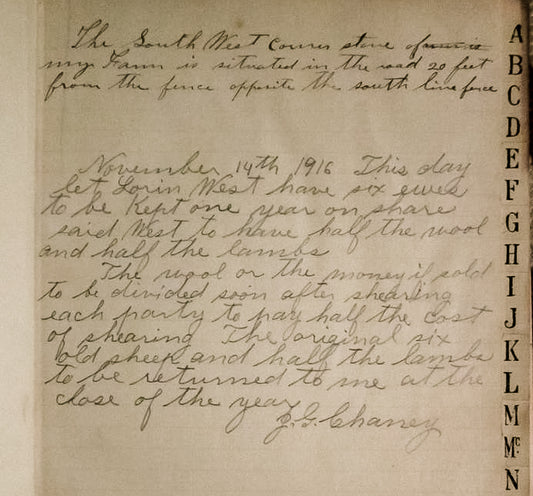 The South West Corner stone of
my Farm is situated in the road 20 feet
from the fence opposite the south line fence
November 14th 1916 This day
let Lorin West have six ewes
to be Kept one year on share
said West to have half the wool
and half the lambs
The wool or the money if sold
to be divided soon after shearing
each party to pay half the Cost
of shearing The original six
old sheep and half the lambs
to be returned to me at the
close of the year
G. Chaney
A
B
C
D
E
F
G
H
I
J
K
L
M
Mc
N